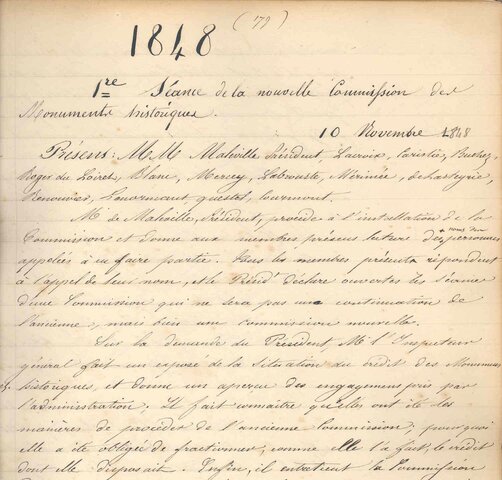 1848 (79)
1re Séance de la nouvelle Commission des
Monuments historiques.
10 Novembre 1848
Présens: M.M. Malleville Président, Lacroix, Caristie, Buchez
Roger du Loiret, Blanc, Mercey, Labrouste, Mérimée, de Lasteyrie,
Renouvier, Lenormant, Questel, Courmont.
M. de Malleville, Président, procède à l'installation de la
Commission et donne aux membres présens lecture des noms des personnes
appelées à en faire partie. Tous les membres présents répondent
à l'appel de leur nom, et le Présidt déclare ouvertes les séances
d'une Commission qui ne sera pas une continuation de
l'ancienne, mais bien une commission nouvelle.
Sur la demande du Président M. l'Inspecteur
général fait un exposé de la situation du crédit des Monumens
historiques, et donne un aperçu des engagemens pris par
l'administration; Il fait connaitre qu'elles ont été les
manières de procéder de l'ancienne Commission; pourquoi
elle a été obligée de fractionner, comme elle l'a fait, le crédit
dont elle disposait. Enfin, il entretient la Commission